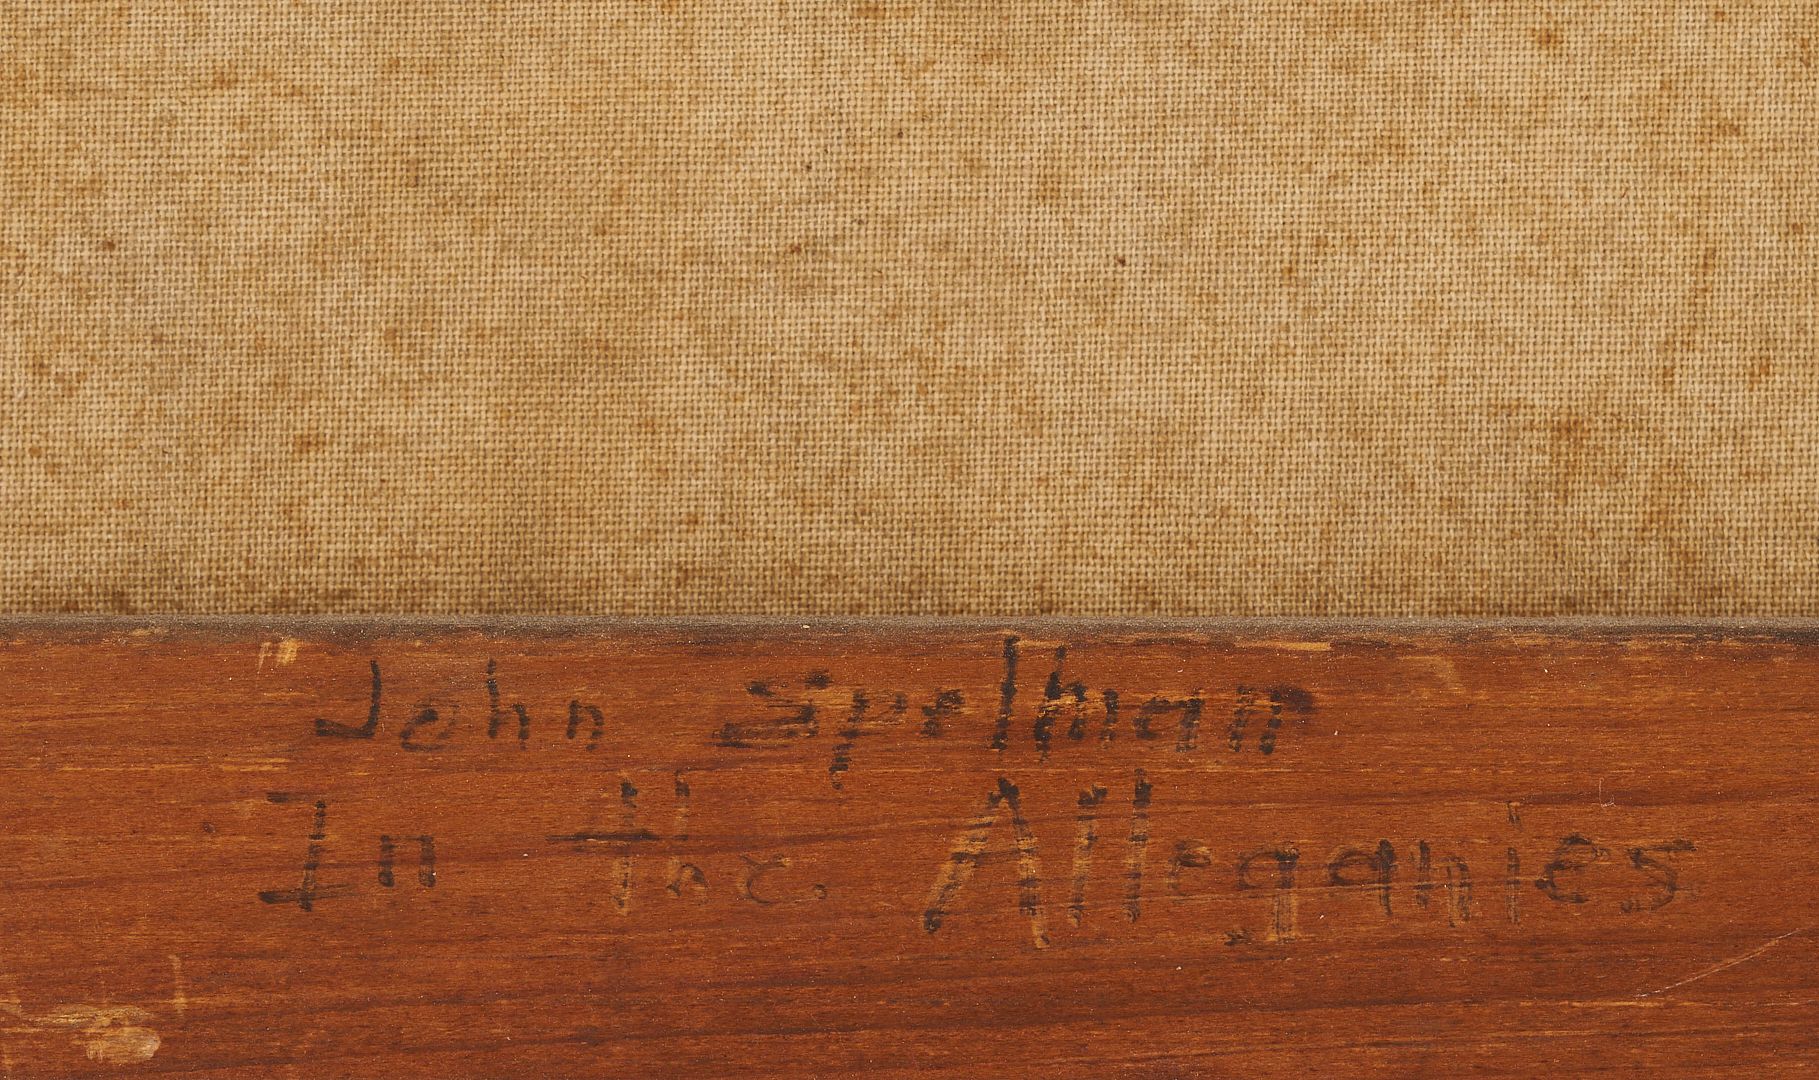 John Spelman
In the. Alleganies